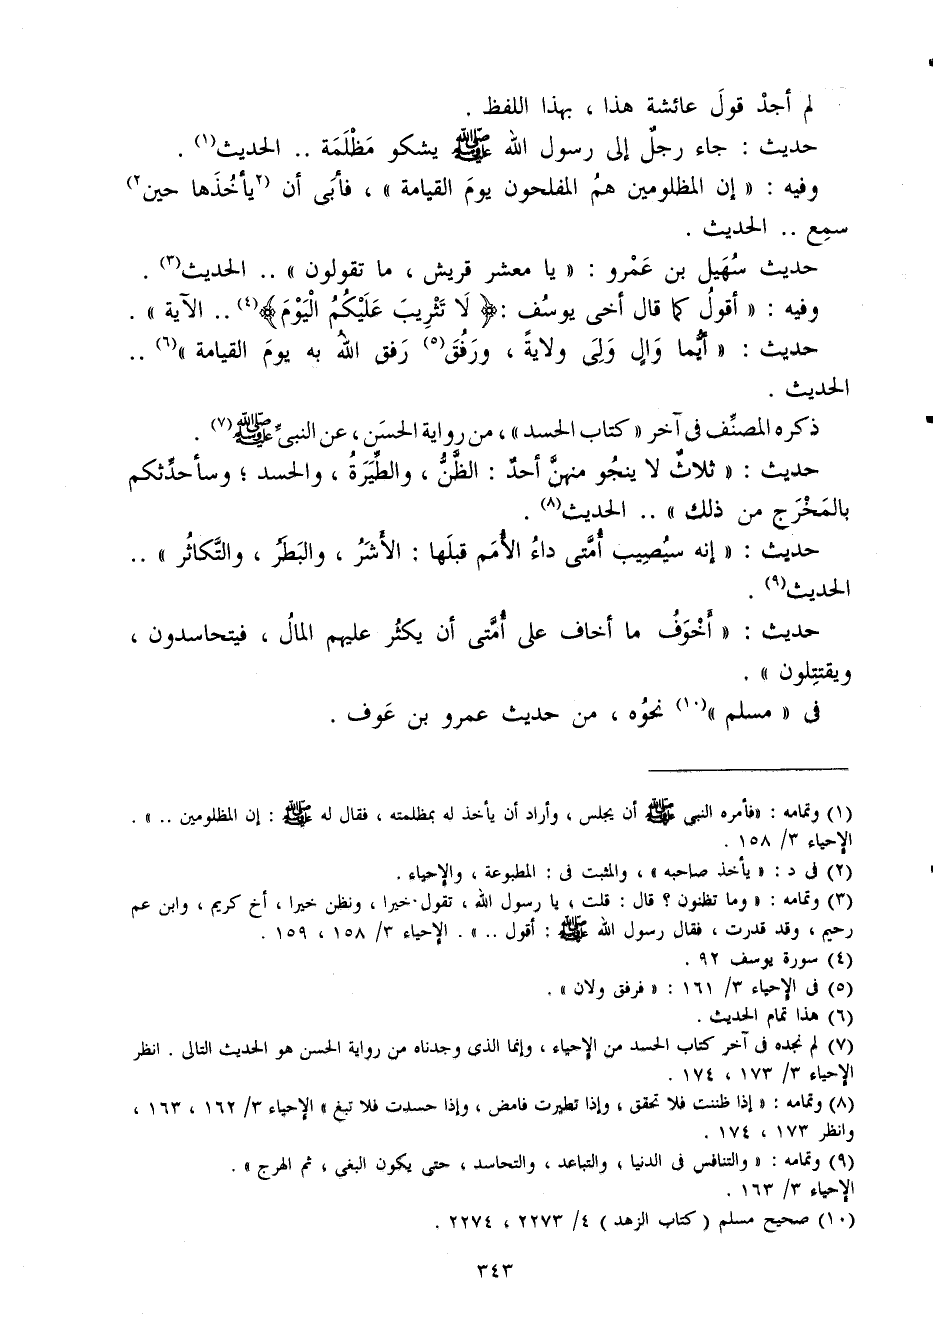 لم أجدْ قولَ عائشة هذا ، بهذا اللفظ .
حديث : جاء رجلٌ إلى رسول الله ﷺ يشكو مَظْلَمَة .. الحديث(١) .
وفيه : « إن المظلومين همُ المفلحون يومَ القيامة » ، فأبَى أن (٢يأخُذَها حين٢)
سمِع .. الحديث .
حديث سُهَيل بن عَمْرو : « يا معشر قريش ، ما تقولون » .. الحديث(٣) .
وفيه : « أقولُ كما قال أخى يوسُف : ﴿ لَا تَثْرِيبَ عَلَيْكُمُ الْيَوْمَ ﴾(٤) .. الآية » .
حديث : « أَيُّما وَالٍ وَلِىَ ولايةً ، ورَفُقَ(٥) رَفق اللهُ به يومَ القيامة »(٦) ..
الحديث .
ذكره المصنِّف فى آخر « كتاب الحسد » ، من رواية الحسَن ، عن النبىِّ ﷺ(٧) .
حديث : « ثلاثٌ لا ينجُو منهنَّ أحدٌ : الظَّنُّ ، والطِّيَرَةُ ، والحسد ؛ وسأحدِّثكم
بالمَخْرَج من ذلك » .. الحديث(٨) .
حديث : « إنه سيُصِيب أُمَّتى داءُ الأُمَم قبلَها : الأَشَرُ ، والبَطَرُ ، والتَّكاثُر » ..
الحديث(٩) .
حديث : « أَخْوَفُ ما أخاف على أُمَّتى أن يكثُر عليهم المالُ ، فيتحاسدون ،
ويقتتِلون » .
فى « مسلم »(١٠) نحوُه ، من حديث عمرو بن عَوف .
(١) وتمامه : «فأمره النبي ﷺ أن يجلس ، وأراد أن يأخذ له بمظلمته ، فقال له ﷺ : إن المظلومين .. » .
الإحياء ٣/ ١٥٨ .
(٢) فى د : « يأخذ صاحبه » ، والمثبت فى : المطبوعة ، والإحياء .
(٣) وتمامه : « وما تظنون ؟ قال : قلت ، يا رسول الله ، تقول خيرا ، ونظن خيرا ، أخ كريم ، وابن عم
رحيم ، وقد قدرت ، فقال رسول الله ﷺ : أقول .. » . الإحياء ٣/ ١٥٨ ، ١٥٩ .
(٤) سورة يوسف ٩٢ .
(٥) فى الإحياء ٣/ ١٦١ : « فرفق ولان » .
(٦) هذا تمام الحديث .
(٧) لم نجده فى آخر كتاب الحسد من الإحياء ، وإنما الذى وجدناه من رواية الحسن هو الحديث التالى . انظر
الإحياء ٣/ ١٧٣ ، ١٧٤ .
(٨) وتمامه : « إذا ظننت فلا تحقق ، وإذا تطيرت فامض ، وإذا حسدت فلا تبغ » الإحياء ٣/ ١٦٢ ، ١٦٣ ،
وانظر ١٧٣ ، ١٧٤ .
(٩) وتمامه : « والتنافس فى الدنيا ، والتباعد ، والتحاسد ، حتى يكون البغى ، ثم الهرج » .
الإحياء ٣/ ١٦٣ .
(١٠) صحيح مسلم ( كتاب الزهد ) ٤/ ٢٢٧٣ ، ٢٢٧٤ .
٣٤٣